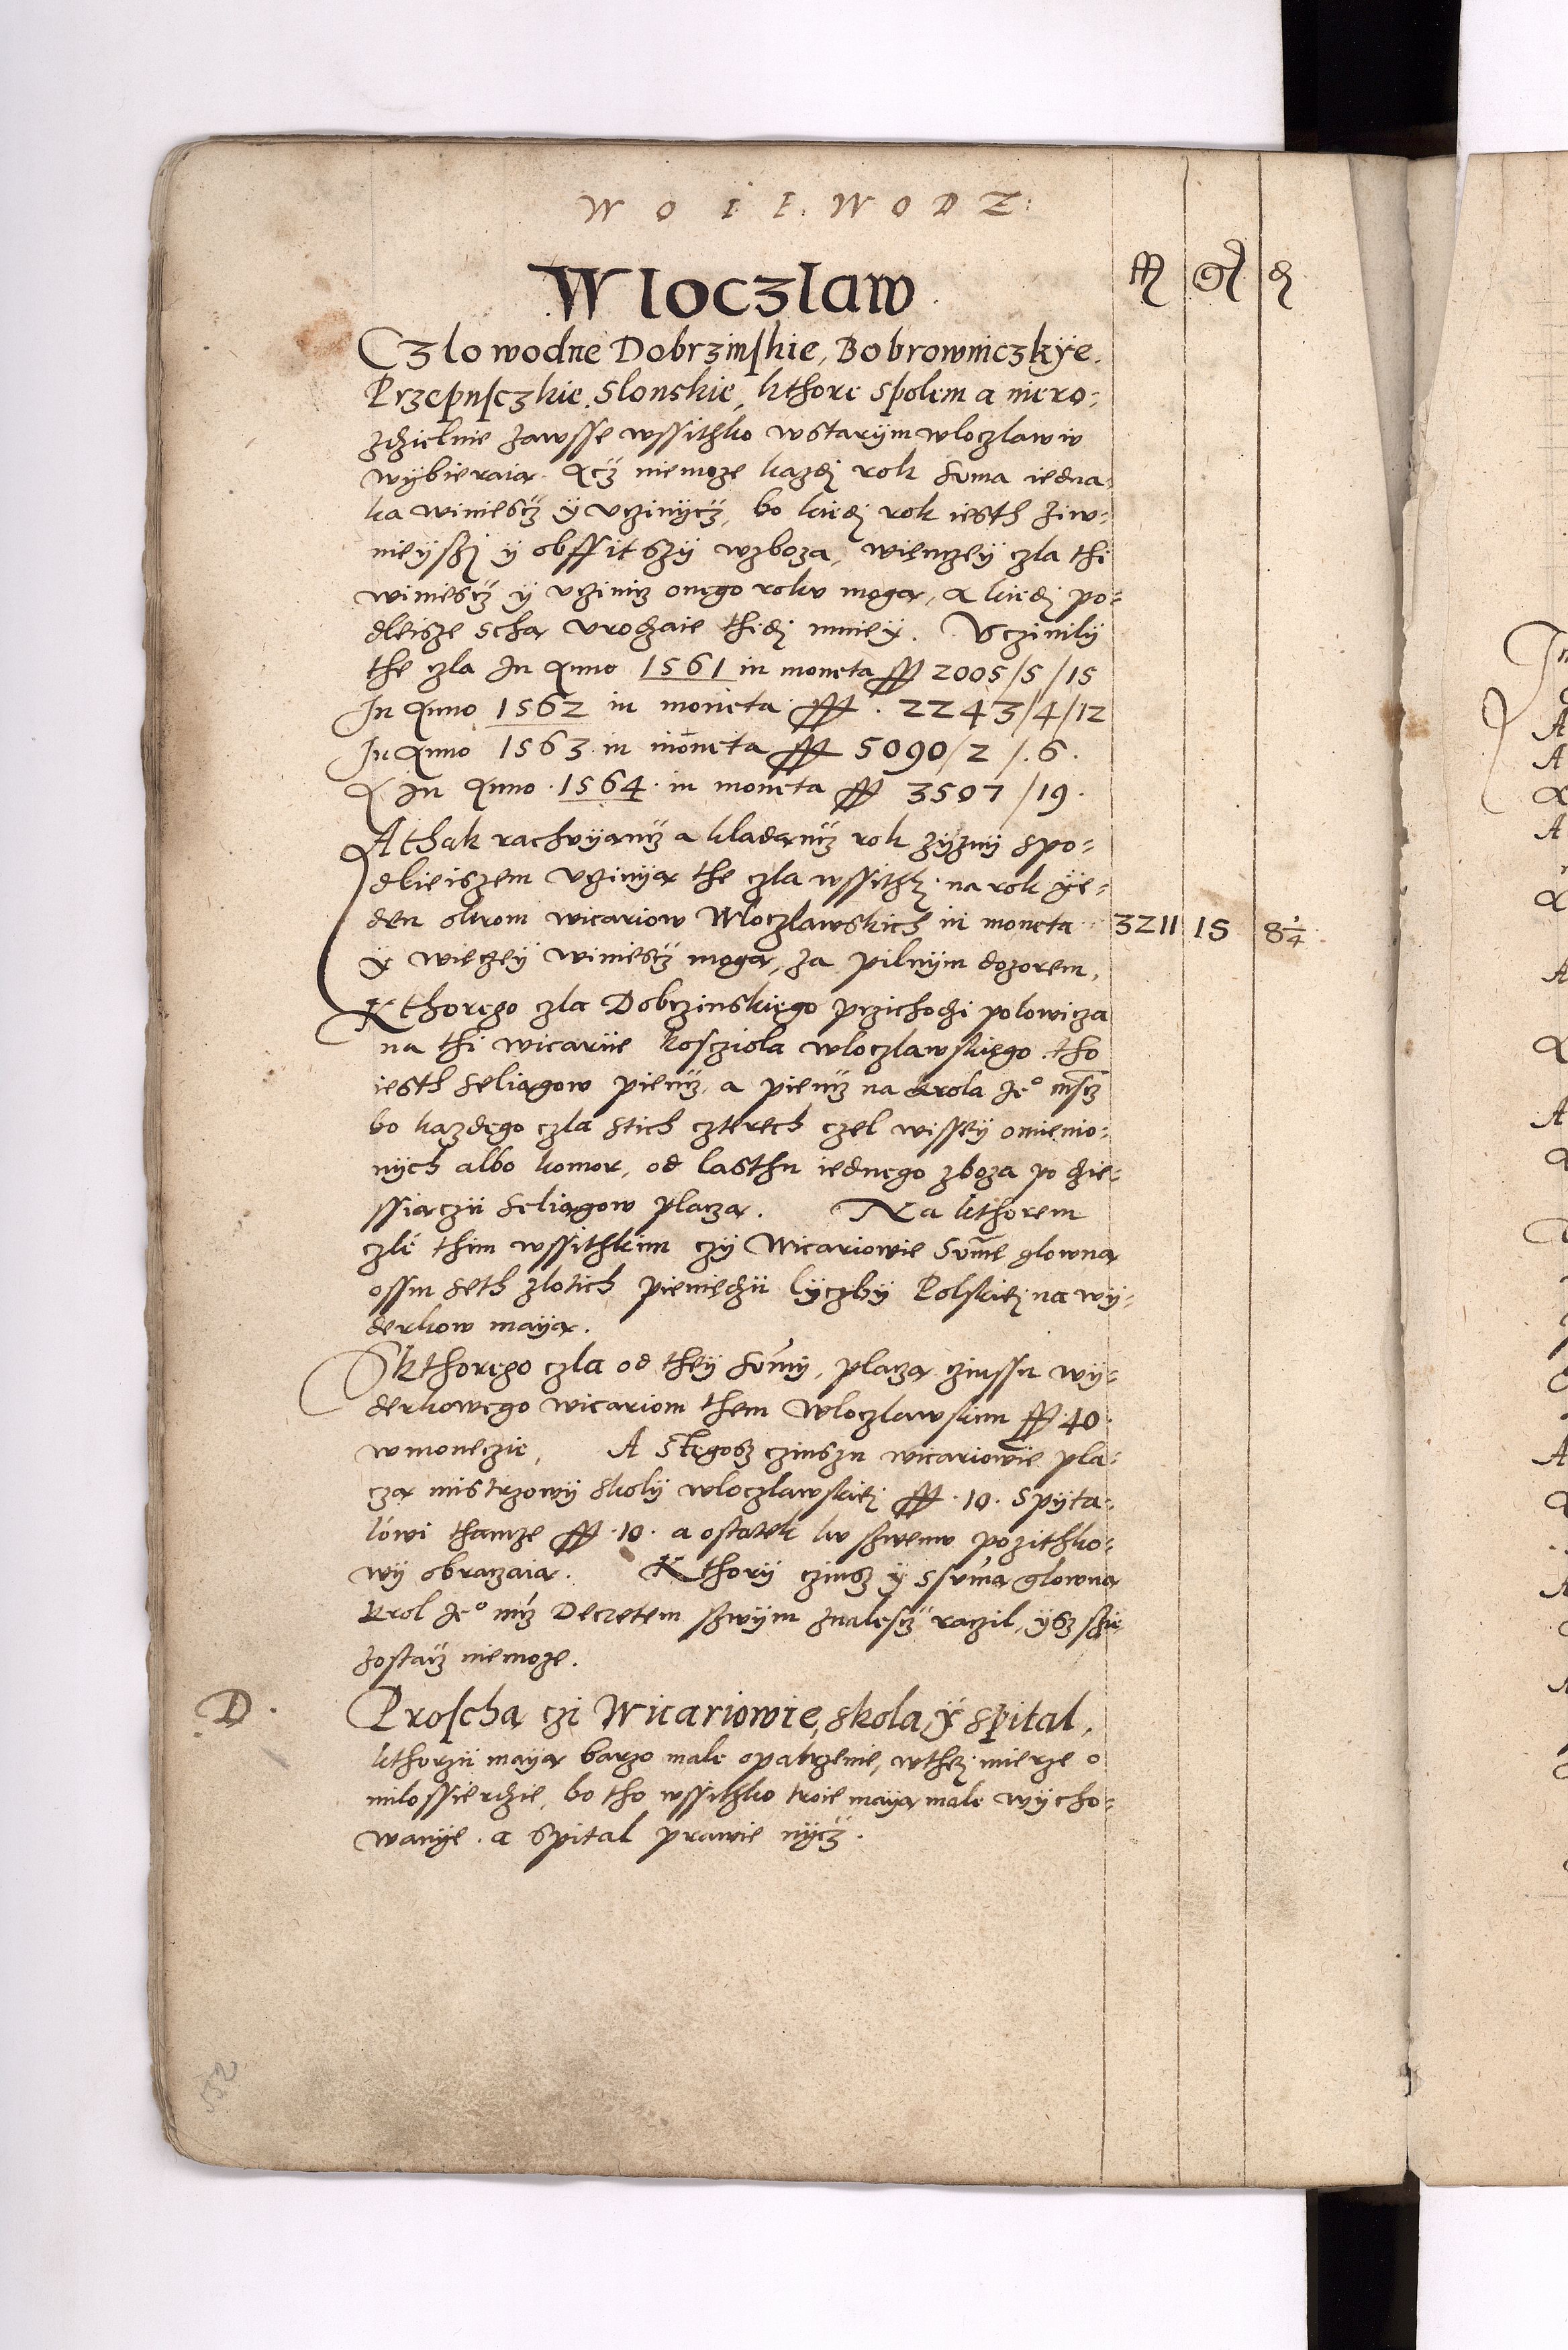 W O I E. W O D Z:
Wloczlaw
M G d
Czlo wodne Dobrzinskie, Bobrowniczkÿe.
Przepusczkie, Slonskie, kthore spolem a niero:
zdzielnie zawsse wssithko wstarÿm wloczlawiu
wÿbieraią. Acz niemoze kazdj rok suma iedna:
ka winiescz ÿ vczinÿcz, bo kiedj rok iesth ziw:
nieÿszj ÿ obffitszÿ wzboza, wienczeÿ czla thi
winiescz ÿ vczinicz onego roku mogą, A kiedj po:
dleisze scha vrodzaie thedj mnieÿ. Vczinilÿ
the czla In Anno 1561 in moneta ff 2005/5/15
In Anno 1562 in moneta ff. 2243/4/12
In Anno 1563 in moneta ff 5090/2/.6.
A In Anno .1564. in moneta ff 3507/19.
Athak rachuÿancz a kladancz rok zÿznÿ spo:
dleiszem vczinÿą the czla wssithkj na rok ÿe:
den okrom wicariow Wloczlawskich in moneta 3211 15 8¼
ÿ wieczeÿ winiescz mogą, za pilnÿm dozorem,
Kthorego czla Dobrzinskiego przichodzi polowicza
na thi wicarie kosciola wloczlawskiego tho
iesth seliągow piencz, a piencz na krola Je° mscz
bo kazdego czla stich czterech czel wisseÿ omienio:
nÿch albo komor, od lasthu iednego zboza po dzie:
ssiączii seliągow placzą. Na kthorem
czle thim wssithkim czÿ Wicariowie Sum̄e glowną
ossm seth zlotich pieniedzii lÿczbÿ Polskiej na wÿ:
derkow maÿą.
Skthorego czla od theÿ sum̄ÿ, placzą czinssu wÿ:
derkowego wicariom them Wloczlawskim ff 40.
wmoneczie, A Stegosz czinszu wicariowie pla:
czą mistrzowÿ skolÿ wloczlawskiej ff .10. Spÿta:
lowi thamze ff .10. a ostatek ku szwemu pozithko:
wÿ obraczaią. Kthorÿ czinsz ÿ ssum̄a glowną
Krol Je° mcz Decretem szwÿm znalescz raczil, ÿsz szie
zostacz niemoze.
D. Proscha czi Wicariowie, skola, ÿ spital,
kthorzii maÿą barzo male opatrzenie, wthej mierze o
milossierdzie, bo tho wssithko troie maÿą male wÿcho:
wanÿe. a spital prawie nÿcz.
552